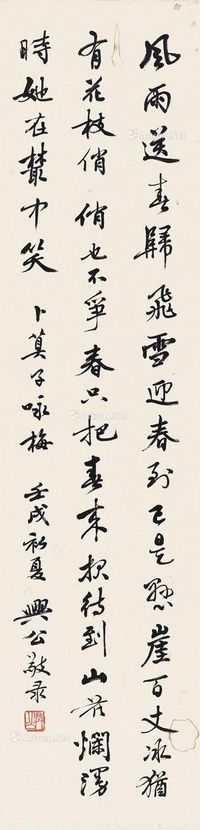 風雨送春歸飛雪迎春到已是懸崖百丈冰猶
有花枝俏俏也不爭春只把春來报待到山花爛漫
時她在叢中笑 卜算子咏梅 壬戌初夏 興公敬录